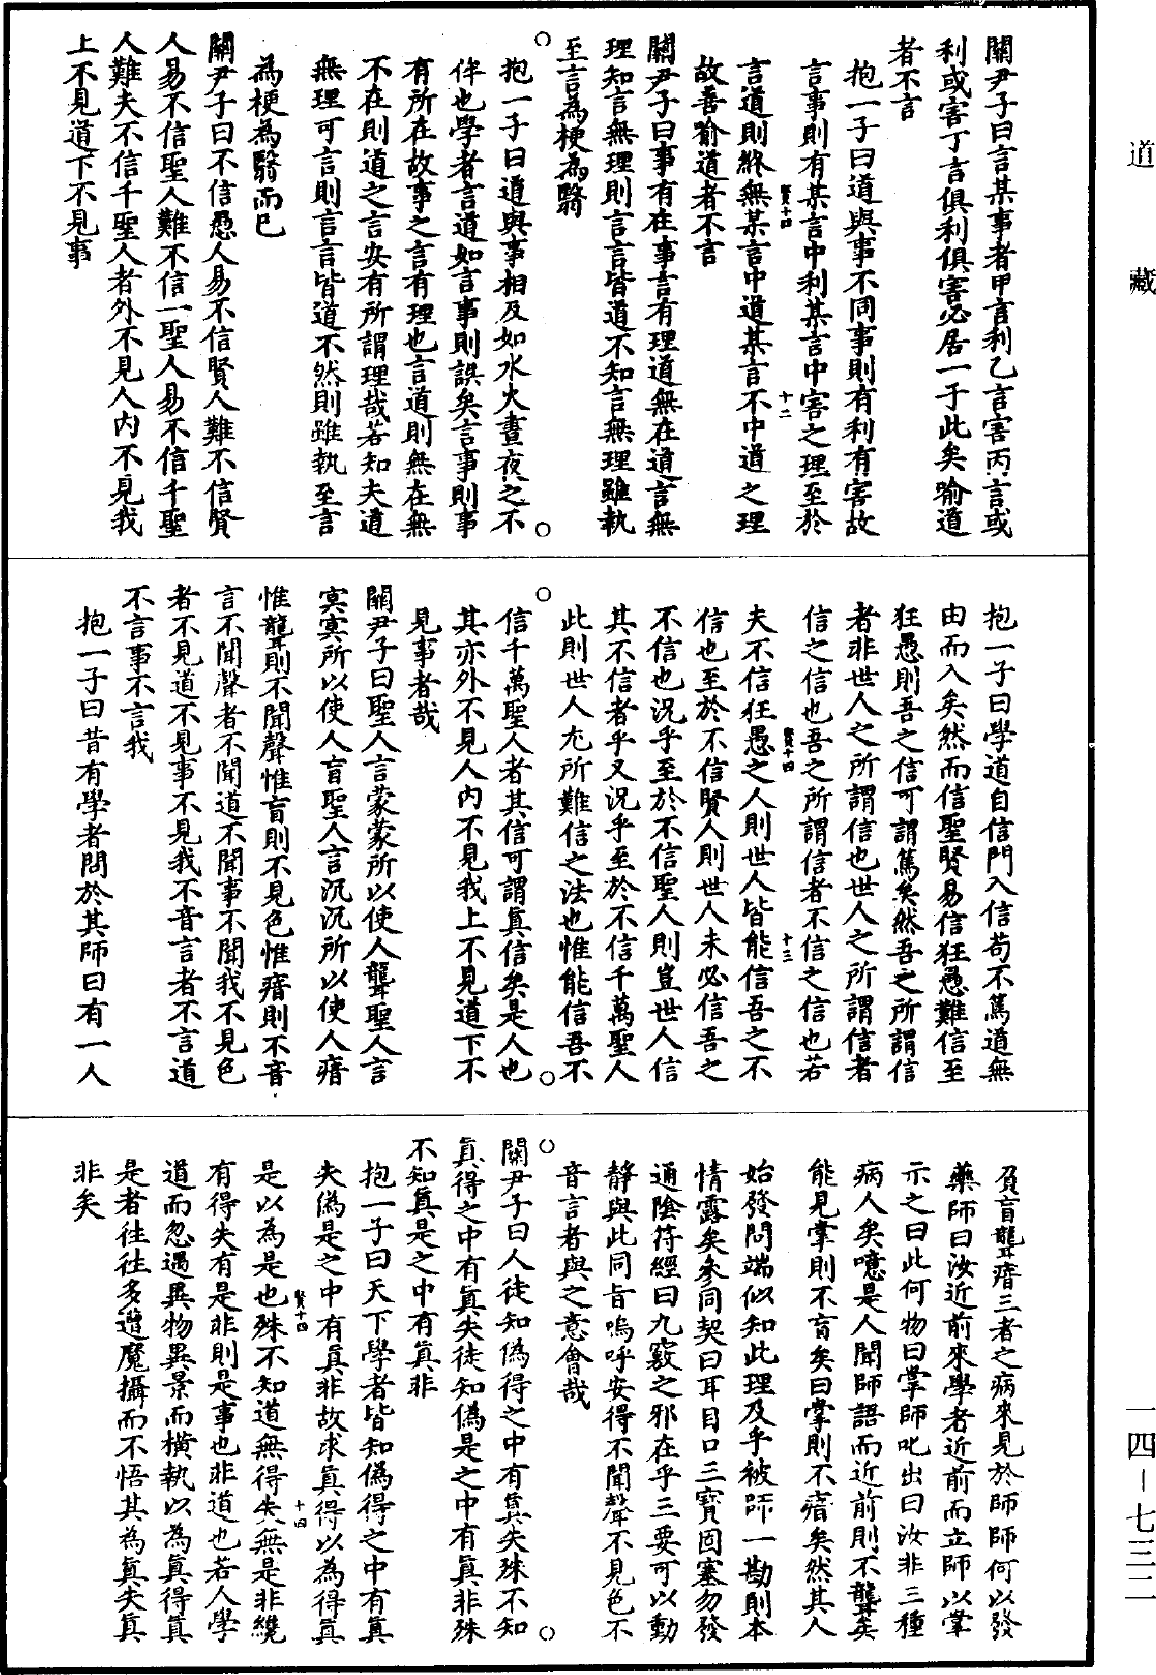 道藏
關尹子曰言某事者甲言利乙言害丙言或
利或害丁言俱利俱害必居一于此矣喻道
者不言
抱一子曰道與事不同事則有利有害故
言事則有某言中利某言中害之理至於
賢十四
十二
言道則終無某言中道某言不中道之理
故善喻道者不言
關尹子曰事有在事言有理道無在道言無
理知言無理則言言皆道不知言無理雖執
至言為梗為翳
抱一子曰道與事相反如水火晝夜之不
侔也學者言道如言事則誤矣言事則事
有所在故事之言有理也言道則無在無
不在則道之言安有所謂理哉若知夫道
無理可言則言言皆道不然則雖執至言
為梗為翳而已
關尹子曰不信愚人易不信賢人難不信賢
人易不信聖人難不信一聖人易不信千聖
人難夫不信千聖人者外不見人內不見我
上不見道下不見事
抱一子曰學道自信門入信苟不篤道無
由而入矣然而信聖賢易信狂愚難信至
狂愚則吾之信可謂篤矣然吾之所謂信
者非世人之所謂信也世人之所謂信者
信之信也吾之所謂信者不信之信也若
賢十四
十三
夫不信狂愚之人則世人皆能信吾之不
信也至於不信賢人則世人未必信吾之
不信也況乎至於不信聖人則豈世人信
其不信者乎又況乎至於不信千萬聖人
此則世人尤所難信之法也惟能信吾不
信千萬聖人者其信可謂真信矣是人也
其亦外不見人內不見我上不見道下不
見事者哉
關尹子曰聖人言蒙蒙所以使人聾聖人言
冥冥所以使人盲聖人言沉沉所以使人瘖
惟聾則不聞聲惟盲則不見色惟瘖則不音
言不聞聲者不聞道不聞事不聞我不見色
者不見道不見事不見我不音言者不言道
不言事不言我
抱一子曰昔有學者問於其師曰有一人
負盲聾瘖三者之病來見於師師何以發
藥師曰汝近前來學者近前而立師以掌
示之曰此何物曰掌師叱出曰汝非三種
病人矣噫是人聞師語而近前則不聾矣
能見掌則不盲矣曰掌則不瘖矣然其人
始發問端似知此理及乎被師一勘則本
情露矣參同契曰耳目口三寶固塞勿發
通陰符經曰九竅之邪在乎三要可以動
靜與此同旨嗚呼安得不聞聲不見色不
音言者與之意會哉
關尹子曰人徒知偽得之中有真失殊不知
真得之中有真失徒知偽是之中有真非殊
不知真是之中有真非
抱一子曰天下學者皆知偽得之中有真
失偽是之中有真非故求真得以為得真
賢十四
十四
是以為是也殊不知道無得失無是非纔
有得失有是非則是事也非道也若人學
道而忽遇異物異景而橫執以為真得真
是者往往多遭魔攝而不悟其為真失真
非矣
一四－七三二